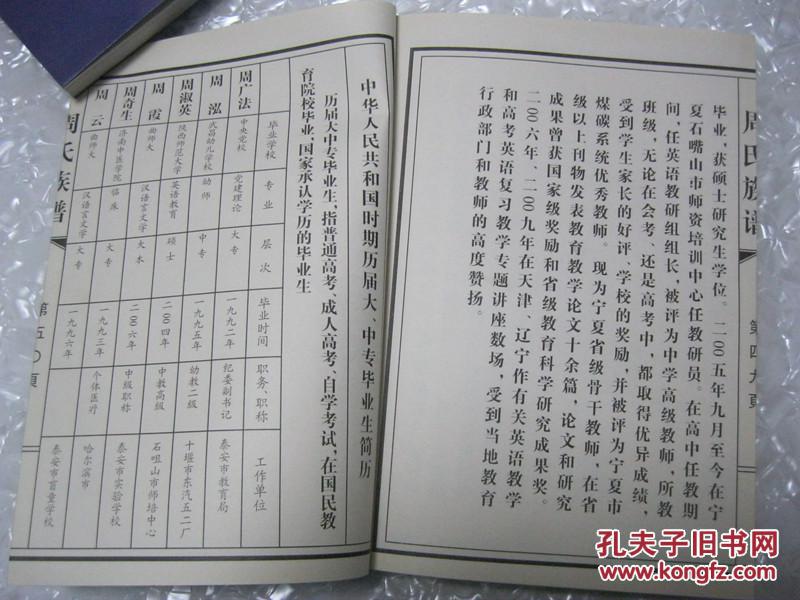 周氏族谱
第四九頁
毕业，获硕士研究生学位。二00五年九月至今在宁
夏石嘴山市师资培训中心任教研员。在高中任教期
间，任英语教研组组长，被评为中学高级教师，所教
班级，无论在会考、还是高考中，都取得优异成绩，
受到学生家长的好评，学校的奖励，并被评为宁夏市
煤碳系统优秀教师。现为宁夏省级骨干教师，在省
级以上刊物发表教育教学论文十余篇，论文和研究
成果曾获国家级奖励和省级教育科学研究成果奖。
二00六年、二00九年在天津、辽宁作有关英语教学
和高考英语复习教学专题讲座数场，受到当地教育
行政部门和教师的高度赞扬。
中华人民共和国时期历届大、中专毕业生简历
历届大中专毕业生，指普通高考、成人高考、自学考试，在国民教
育院校毕业，国家承认学历的毕业生
毕业学校 专业 层次 毕业时间 职务、职称 工作单位
周广法 中央党校 党建理论 大专 一九九二年 纪委副书记 泰安市教育局
周泓 武昌幼儿学校 幼师 中专 一九九五年 幼教二级 十堰市东汽五二厂
周淑英 陕西师范大学 英语教育 硕士 二00四年 中教高级 石咀山市师培中心
周霞 曲师大 汉语言文学 大本 二00六年 中级职称 泰安市实验学校
周奇生 济南中医学院 临床 大专 一九九三年 个体医疗 哈尔滨市
周云 曲师大 汉语言文学 大专 一九九六年 泰安市盲童学校
周氏族谱
第五〇頁
孔夫子旧书网
www.kongfz.com